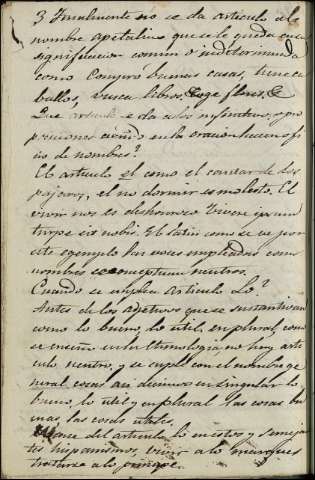 3 Finalmente no se da articulo al
nombre apelativo que se le queda en su
significacion comun o indeterminada
como Compro buenas casas, tiene ca
ballos, busca libros, coge flores. &
Que articulo se da a los infinitivos, y pro
posiciones cuando en la oracion hacen ofi
cio de nombres?
El articulo el como el cantar de los
pajaros, el no dormir es molesto. El
vivir nos es deshonroso Vivere ipsum
turpe sit nobis. El latin como se ve por
este egemplo las voces empleadas como
nombres se conceptuan neutros.
Cuando se emplea articulo Lo?
Antes de los adjetivos que se sustantivan
como lo bueno, lo util, en plural, como
se enseño en la Ethimologia, no hay arti
culo neutro, y se suple con el nombre ge
neral cosas asi decimos en singular lo
bueno, lo util y en plural las cosas bue
nas, las cosas utiles.
del articulo lo en estos y semejan
tes hispanismos, vivir a lo marques
tratarse a lo principe.